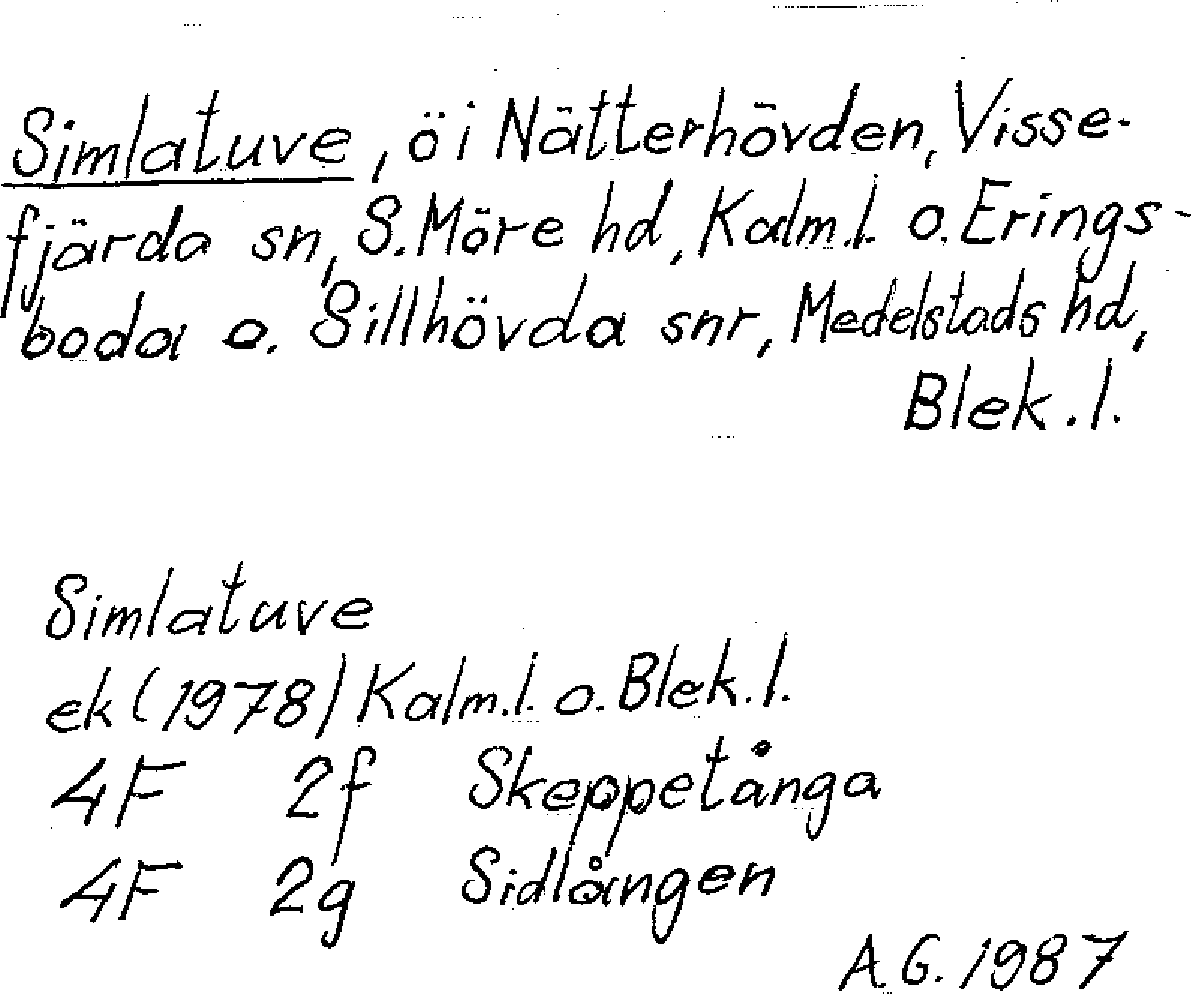 Simlatuve, ö i Nätterhövden, Visse-
fjärda sn, S. Möre hd, Kalm.l. o. Erings-
boda o. Sillhövda snr, Medelstads hd,
Blek.l.
Simlatuve
ek (1978) Kalm.l. o. Blek.l.
4F 2f Skeppetånga
4F 2g Sidlången
A.G. 1987